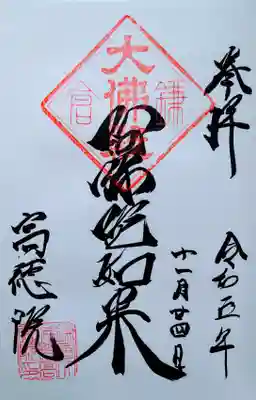 奉拝
令和五年
十一月廿四日
阿弥陀如来
高徳院
鎌倉
大佛殿